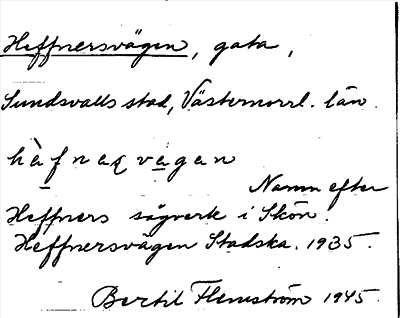 Heffnersvägen, gata,
Sundsvalls stad, Västernorrl. län.
hàfnaʂvägan
Namn efter
Heffners sågverk i Skön.
Heffnersvägen Stadska. 1935.
Bertil Flemström 1945.